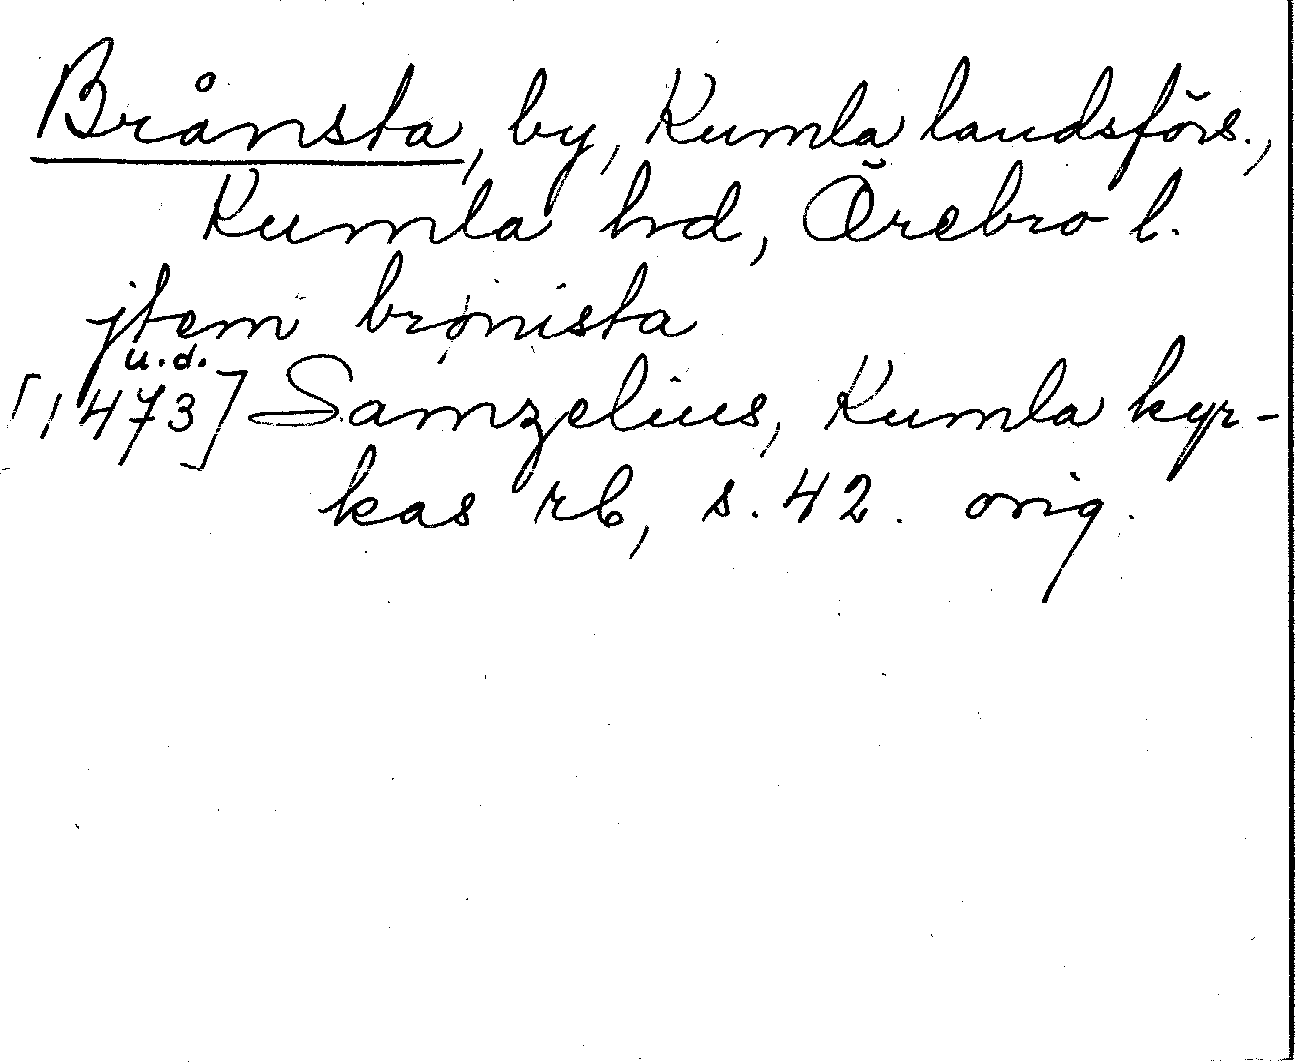 Brånsta, by, Kumla landsförs.,
Kumla hd, Örebro l.
jtem brønista
u.d.
[1473] Samzelius, Kumla kyr-
kas rb, s. 42. orig.